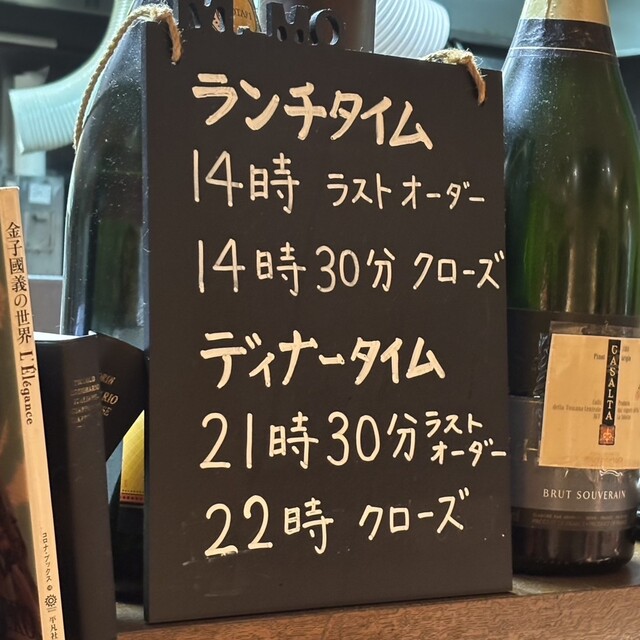 MEMO
ランチタイム
14時 ラストオーダー
14時30分 クローズ
ディナータイム
21時30分 ラスト
オーダー
22時 クローズ
金子國義の世界 L'Élégance
コロナ・ブックス
平凡社
CASALTA
BRUT SOUVERAIN